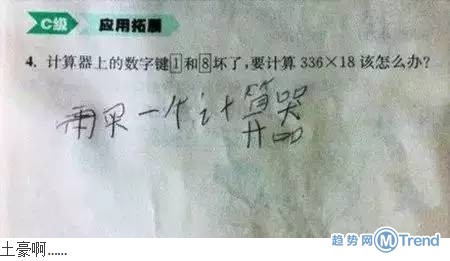 C级 应用拓展
4. 计算器上的数字键1和8坏了,要计算336×18该怎么办?
再买一个计算器
趋势网 M Trend
土豪啊……